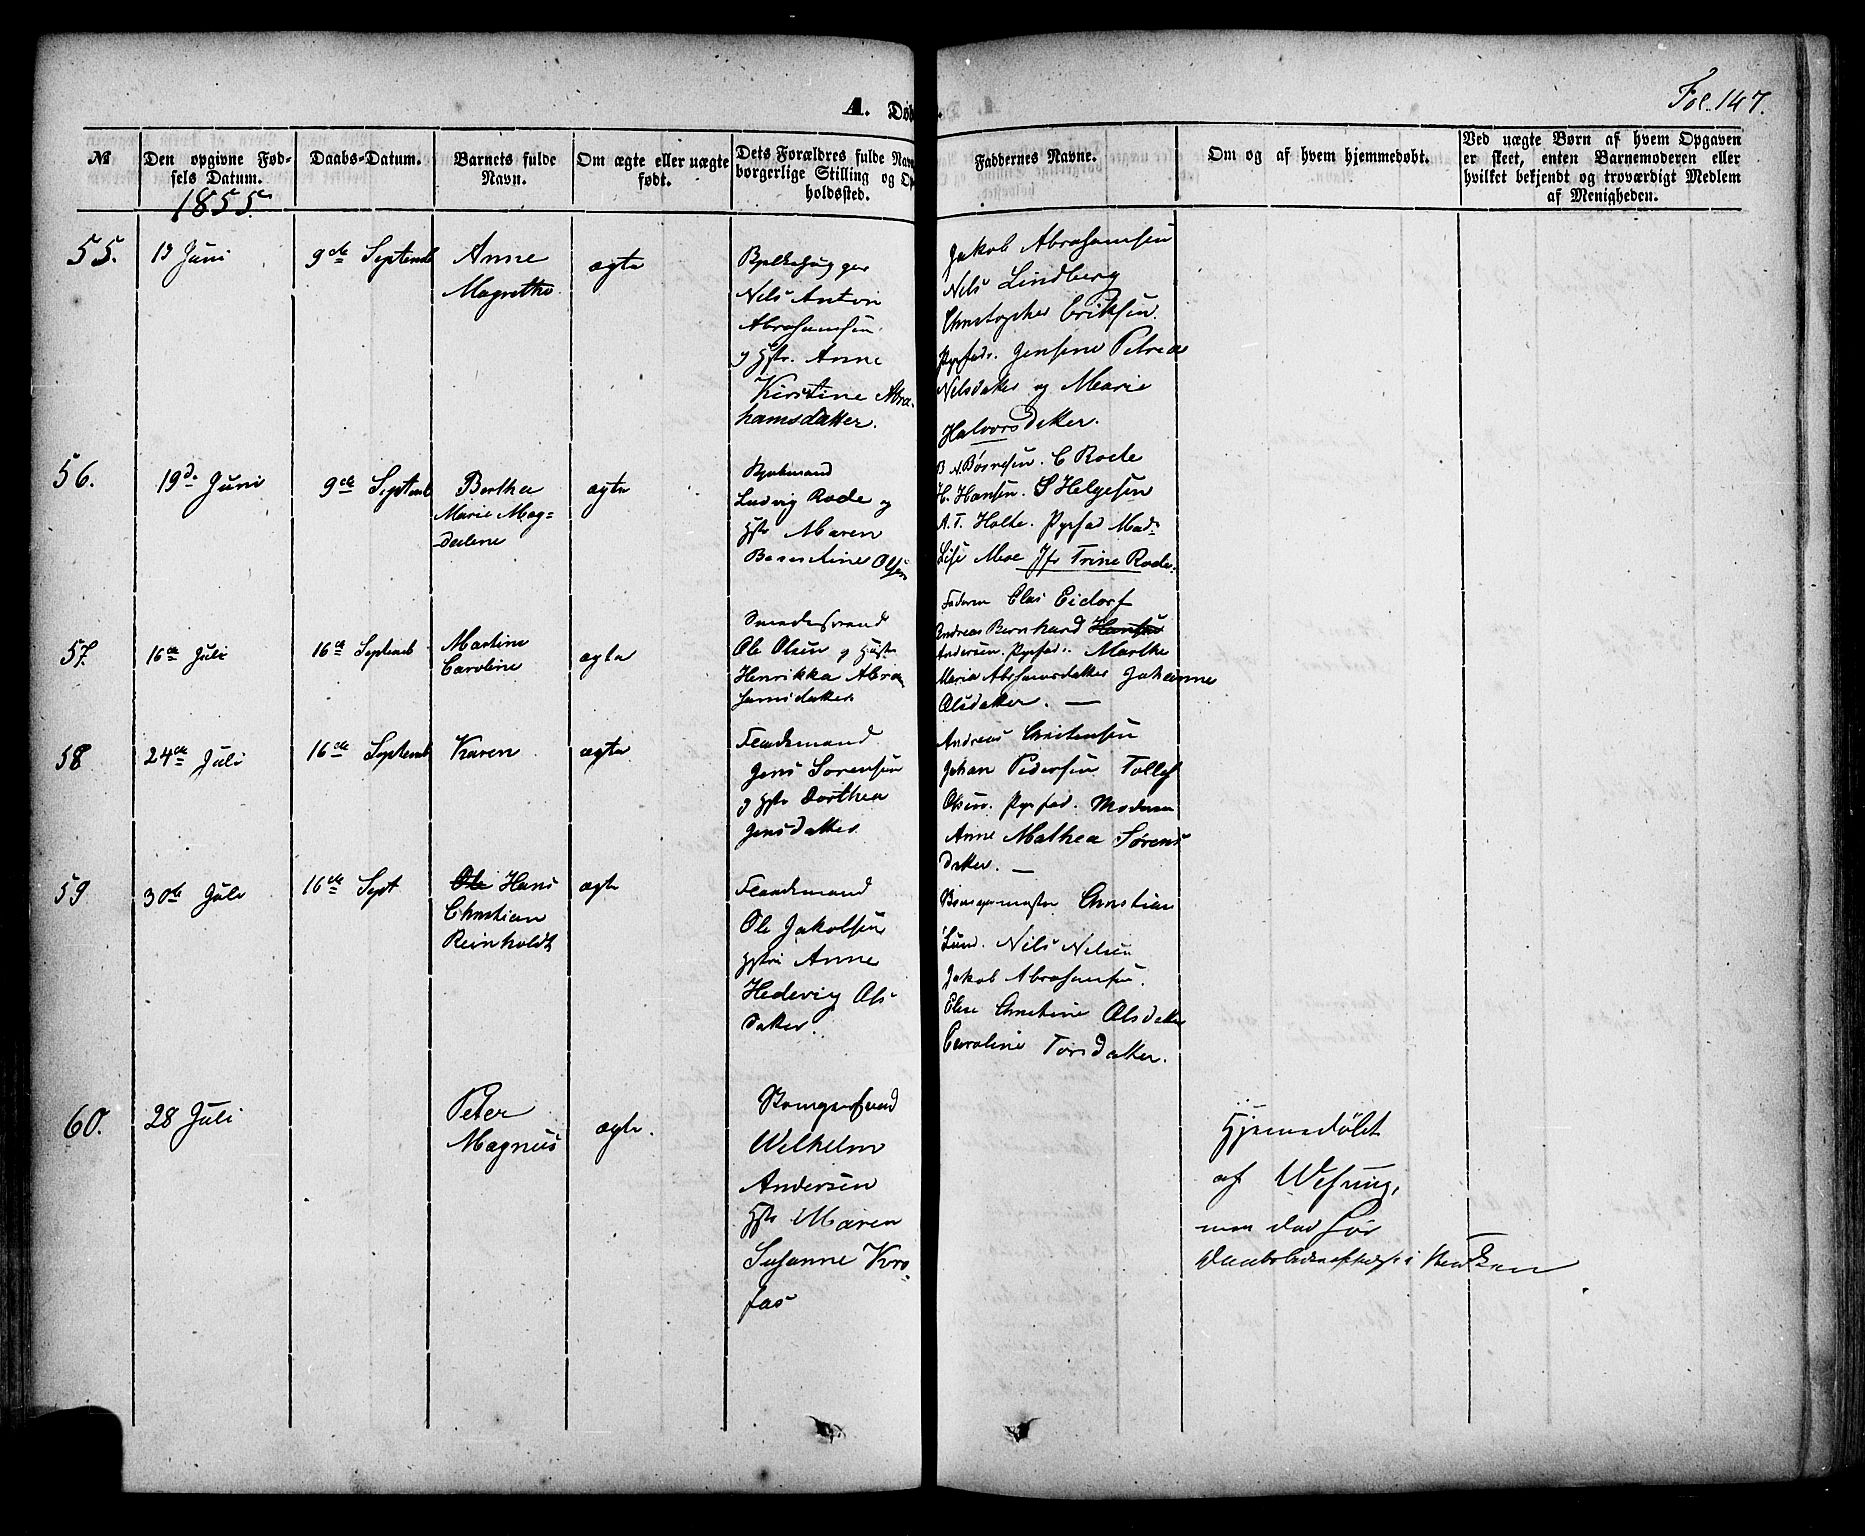 Fol. 147.
A. Døb
№
Den opgivne Fød-
sels Datum.
1855
Daabs-Datum.
Barnets fulde
Navn.
Om ægte eller uægte
født.
Dets Forældres fulde Navn
borgerlige Stilling og Op
holdssted.
Faddernes Navne.
Om og af hvem hjemmedøbt.
Ved uægte Børn af hvem Opgaven
er skeet, enten Barnemoderen eller
hvilket bekjendt og troværdigt Medlem
af Menigheden.
55.
13 Juni
9de Septemb
Anne
Magrethe
ægte
Bjelkehugger
Nils Anton
Abrahamsen
og Hstr. Anne
Kirstine Abra-
hamsdatter.
Jakob Abrahamsen
Nels Lindberg
Christopher Eriksen.
Pigfad. Jensine Petrea
Nilsdatter og Marie
Halvorsdatter.
56.
19d Juni
9de Septemb
Bertha
Marie Mag-
dalene
ægte
Ludvig Rode og
Hstr Maren
Olsen
C Rode
H. Hansen. S Helgesen
A. T. Holte. Pigfad Mad.
Lise Moe Jfr Trine Rode.
57.
16de Juli
16de Septemb
Martine
Caroline
ægte
Ole Olsen og Hust
Henrikka Abra
hamsdatter
Faderen Clas Eidorf
Andreas Bernhard Hansen
Andersen. Pigfad. Marthe
Maria Abrahamsdatter Johanne
Olsdatter. —
58
24de Juli
16de Septemb
Karen
ægte
Jens Sørensen
og Hstr Dorthea
Jensdatter
Andreas Christensen
Johan Pedersen Tollef
Olsen. Pigfad. Moderen
Anne Mathea Sørens
datter. —
59
30te Juli
16de Sept
Ole Hans
Christian
Reinholdt
ægte
Ole Jakobsen
Hstr Anne
Hedevig Ols
datter.
Christian
Lund. Nils Nelsen
Jakob Abrahamsen.
Elise Christine Olsdatter
Caroline Torsdatter.
60.
28 Juli
Peter
Magnus
ægte.
Wilhelm
Andersen
Hstr Maren
Susanne Kro-
fas
Hjemmedøbt
af
men død før
Daabsbekræftelse i Kirken